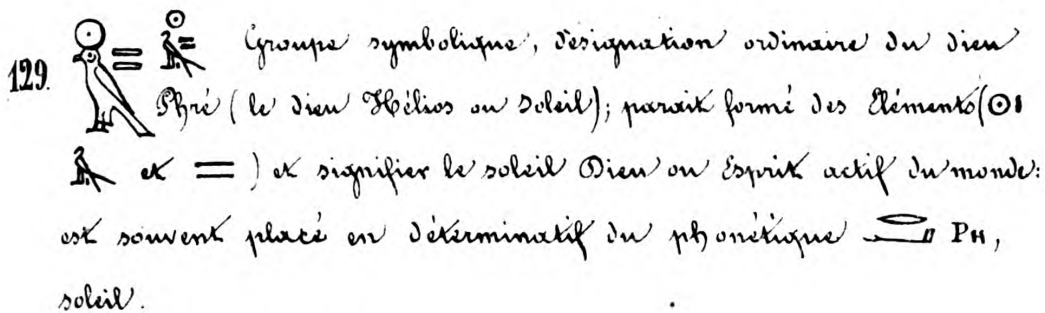 129. 𓅃𓇳 = 𓅃𓇳 = Groupe symbolique, désignation ordinaire du dieu
Phré (le dieu Hélios ou soleil); parait formé des Eléments (𓇳𓏤
𓅃 et =) et signifier le soleil Dieu ou Esprit actif du monde:
est souvent placé en déterminatif du phonétique 𓂋𓂝 ΡΗ,
soleil.